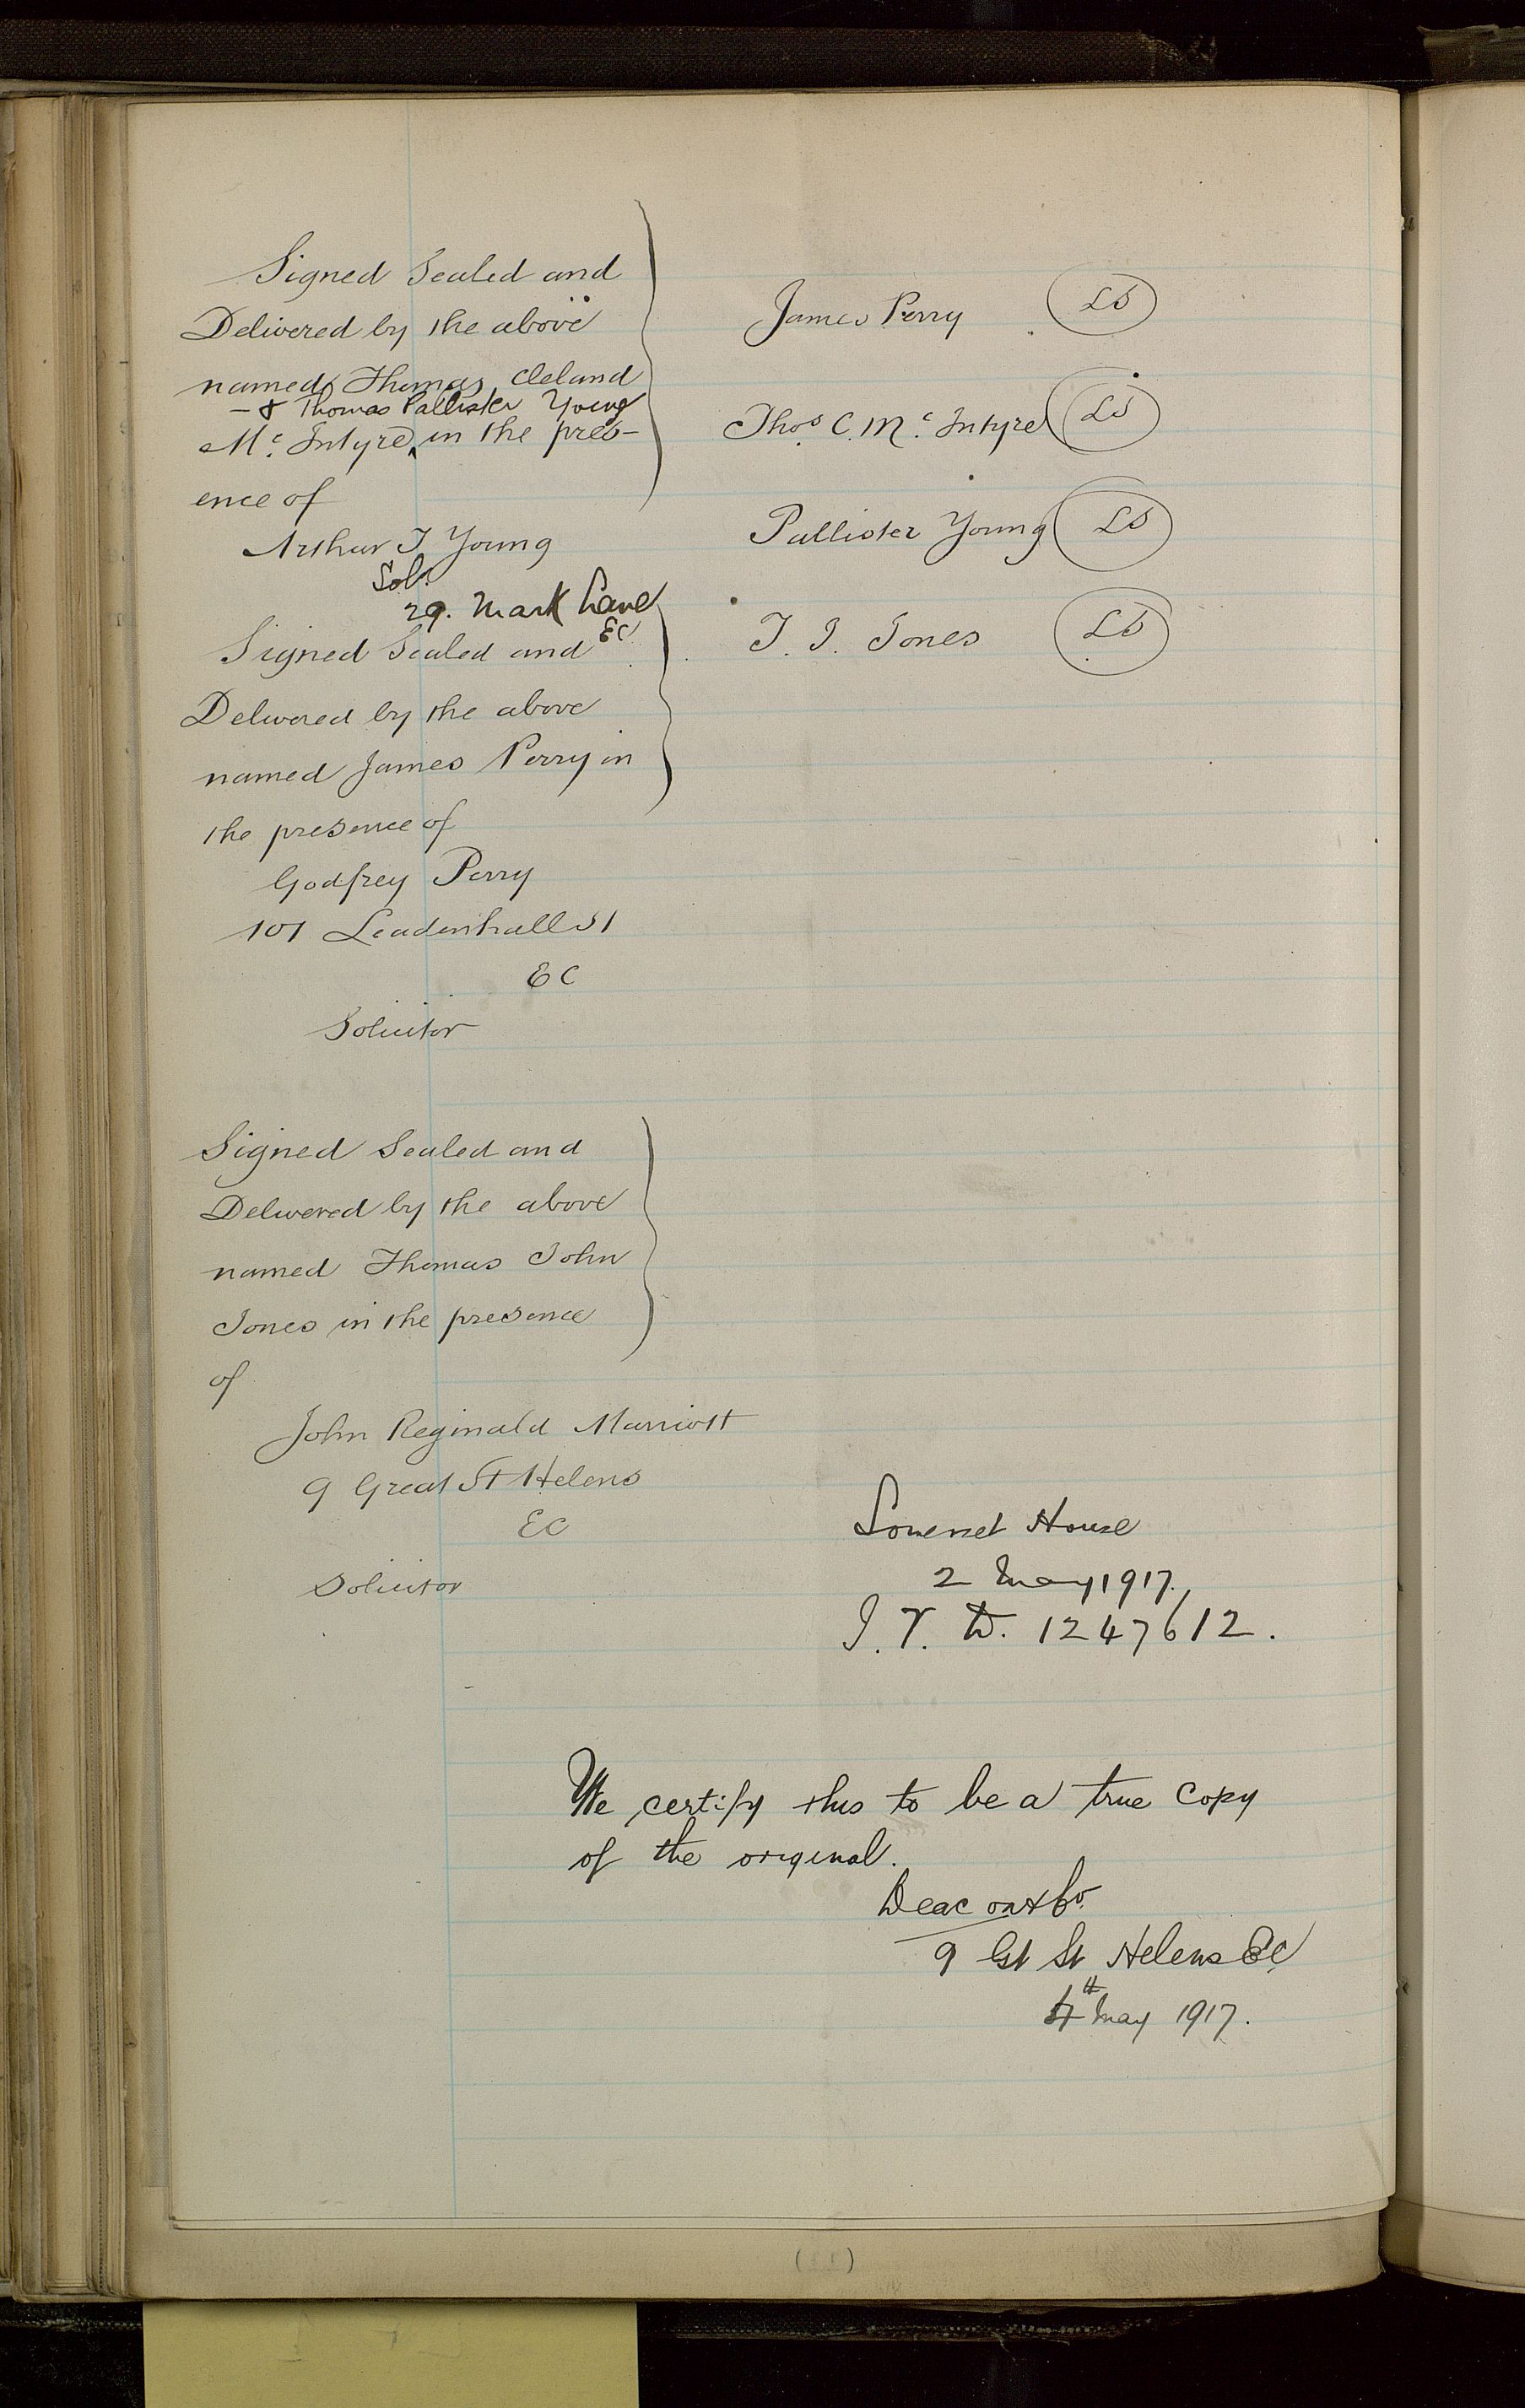 Signed Sealed and
Delivered by the above
named Thomas Cleland
- & Thomas Pallister Young
Mc. Intyre in the pres-
ence of
Arthur J Young
Solr.
29. Mark Lane
EC
James Perry LS
Thos C. Mc. Intyre LS
Pallister Young LS
T. J. Jones LS
Signed Sealed and
Delivered by the above
named James Perry in
the presence of
Godfrey Perry
101 Leadenhall St
EC
Solicitor
Signed Sealed and
Delivered by the above
named Thomas John
Jones in the presence
of
John Reginald Marriott
9 Great St Helens
EC
Solicitor
Somerset House
2 May 1917.
1247612.
We certify this to be a true Copy
of the original.
Deacon & Co.
9 Gt St Helens EC
4th May 1917.